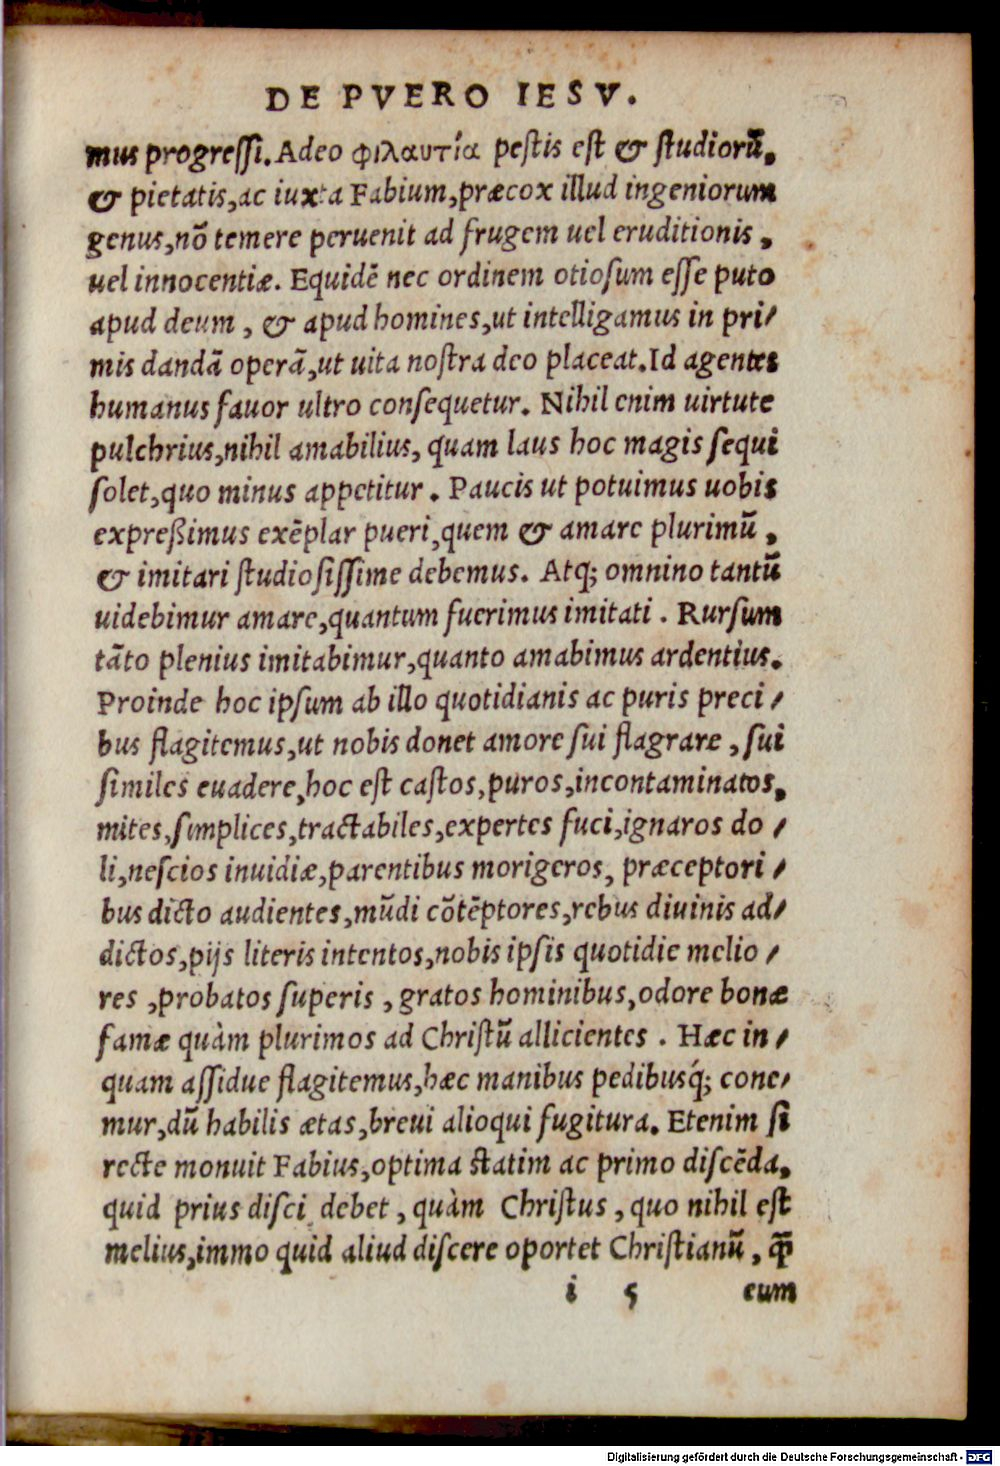 DE PVERO IESV.
mus progreſſi. Adeo φιλαυτία peſtis eſt & ſtudiorū,
& pietatis, ac iuxta Fabium, præcox illud ingeniorum
genus, nō temere peruenit ad frugem uel eruditionis,
uel innocentiæ. Equidē nec ordinem otioſum eſſe puto
apud deum, & apud homines, ut intelligamus in pri/
mis dandā operā, ut uita noſtra deo placeat. Id agentes
humanus fauor ultro conſequetur. Nihil enim uirtute
pulchrius, nihil amabilius, quam laus hoc magis ſequi
ſolet, quo minus appetitur. Paucis ut potuimus uobis
expreßimus exēplar pueri, quem & amare plurimū,
& imitari ſtudioſiſſime debemus. Atq; omnino tantū
uidebimur amare, quantum fuerimus imitati. Rurſum
tāto plenius imitabimur, quanto amabimus ardentius.
Proinde hoc ipſum ab illo quotidianis ac puris preci/
bus flagitemus, ut nobis donet amore ſui flagrare, ſui
ſimiles euadere, hoc eſt caſtos, puros, incontaminatos,
mites, ſimplices, tractabiles, expertes fuci, ignaros do/
li, neſcios inuidiæ, parentibus morigeros, præceptori/
bus dicto audientes, mūdi cōtēptores, rebus diuinis ad/
dictos, pijs literis intentos, nobis ipſis quotidie melio/
res, probatos ſuperis, gratos hominibus, odore bonæ
famæ quàm plurimos ad Chriſtū allicientes. Hæc in/
quam aſſidue flagitemus, hæc manibus pedibusq́; cone/
mur, dū habilis ætas, breui alioqui fugitura. Etenim ſi
recte monuit Fabius, optima ſtatim ac primo diſcēda,
quid prius diſci debet, quàm Chriſtus, quo nihil eſt
melius, immo quid aliud diſcere oportet Chriſtianū, q̄
i 5 eum
Digitalisierung gefördert durch die Deutsche Forschungsgemeinschaft - DFG